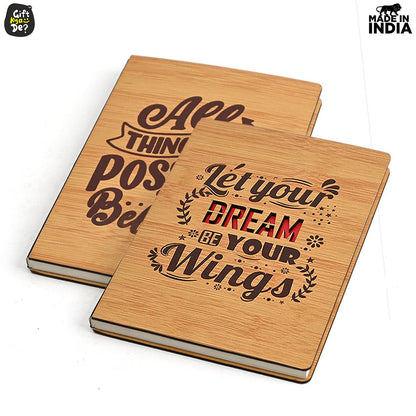 Gift
Kya
De?
MADE IN
INDIA
All
THIN
POSS
Bel
Let your
DREAM
BE YOUR
Wings